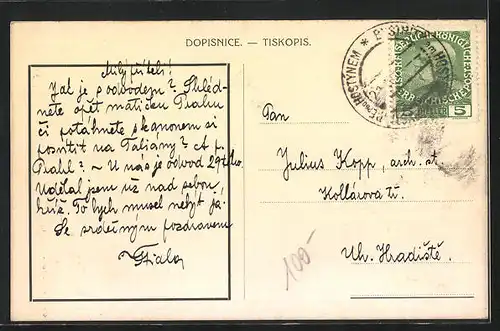 DOPISNICE. — TISKOPIS.
Milý příteli!
Jak je s odvodem? Shléd-
nete opět matičku Prahu
či potáhnete s kanonem si
posvítit na Taliany? A p.
Prahl? — U nás je odvod 29.
Udělal jsem už nad sebou
kříž. To bych musel nebýt já.
Se srdečným pozdravem
Fiala
BYSTŘICE POD HOSTÝNEM
5
Pan
Julius Kopp, arch. st.
Kollárova tř.
Uh. Hradiště.
100-